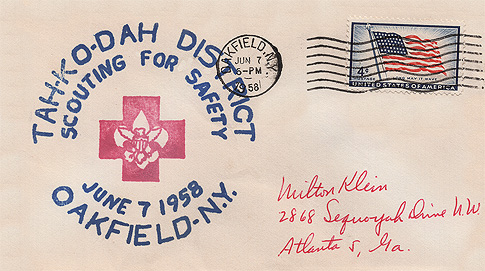 TAHKO-DAH DISTRICT
SCOUTING FOR SAFETY
JUNE 7 1958
OAKFIELD-N.Y.
OAKFIELD, N.Y.
JUN 7
6-PM
1958
4¢
POSTAGE
LONG MAY IT WAVE
UNITED STATES OF AMERICA
Milton Klein
2868 Sequoyah Drive N.W.
Atlanta 5, Ga.